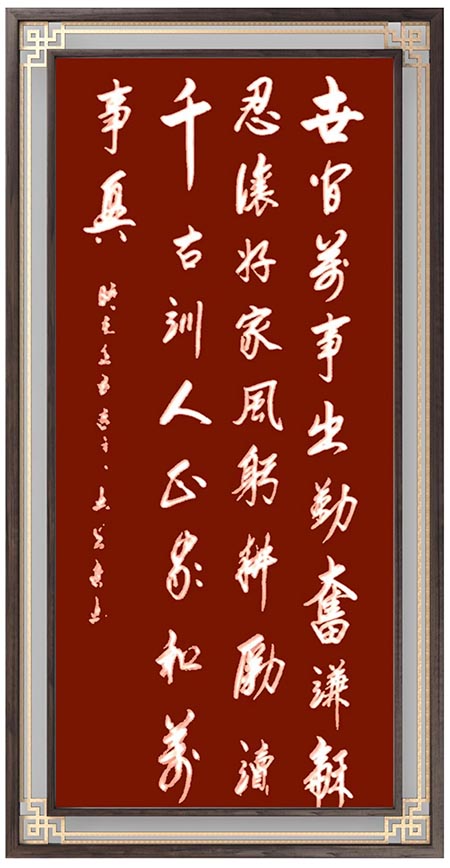 世間萬事出勤奮謙龢
忍讓好家風躬耕勵讀
千古訓人正家和萬
事興